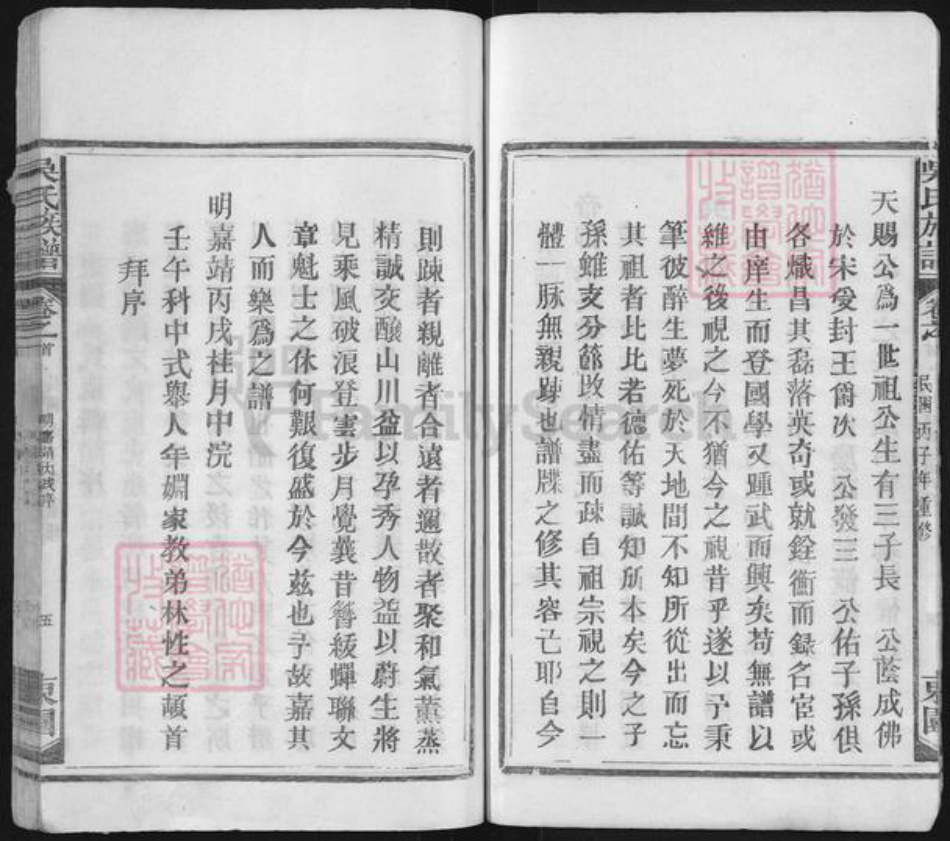 吳氏族譜
卷之首
民國丙子年重修
東園
天賜公爲一世祖公生有三子長 公蔭成佛
於宋受封王爵次 公發三 公佑子孫俱
各熾昌其磊落英奇或就銓衡而錄名宦或
由庠生而登國學又踵武而興矣苟無譜以
維之後視之今不猶今之視昔乎遂以予秉
筆彼醉生夢死於天地間不知所從出而忘
其祖者比比若德佑等誠知所本矣今之子
孫雖支分餙故情盡而疎自祖宗視之則一
體一脉無親踈也譜牒之修其容已耶自今
則踈者親離者合遠者邇散者聚和氣薰蒸
精誠交釀山川益以孕秀人物益以蔚生將
見乘風破浪登雲步月覺曩昔簪綾蟬聯文
章魁士之休何艱復盛於今茲也予故嘉其
人而樂爲之譜
明嘉靖丙戌桂月中浣
壬午科中式舉人年姻家教弟林性之頓首
拜序
吳氏族譜
卷之首
五
東園
FamilySearch